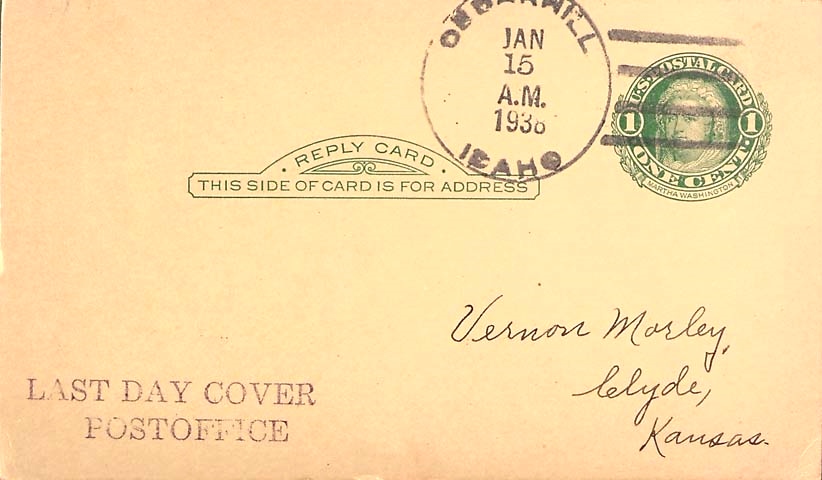 JAN
15
A.M.
1938
IDAHO
U.S. POSTAL CARD
1 1
ONE CENT
MARTHA WASHINGTON
REPLY CARD
THIS SIDE OF CARD IS FOR ADDRESS
Vernon Morley,
Clyde,
Kansas.
LAST DAY COVER
POSTOFFICE